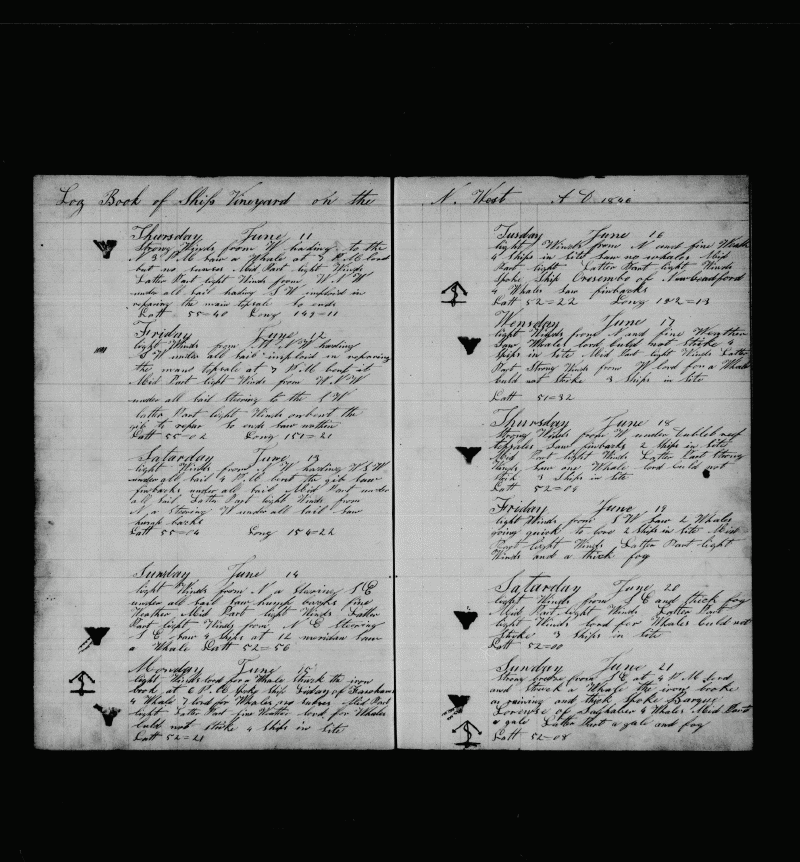 Log Book of Ship Vineyard on the
Thursday June 11
Strong Winds from W hading to the
N 3 P.M saw a Whale at 7 P.M lord
but no Mid Part light Winds
Latter Part light Winds from W N W
under all Sail hading S W imploid in
reparing the main topsale to ends
Latt 55=40 Long 149=11
Friday June 12
light Winds from W N W hading
S W under all Sail imploid in reparing
the main topsale at 7 P.M bent it
Mid Part light Winds from W N W
under all Sail Stering to the S W
latter Part light Winds onbent the
gib to repar So ends Saw nothin
Latt 55=02 Long 151=21
Saturday June 13
light Winds from N W hading W S W
under all Sail 4 P.M bent the gib Saw
finbacks under all Sail Mid Part under
all Sail Latter Part light Winds from
N a Stering W under all Sail Saw
hump backs
Latt 55=04 Long 154=22
Sunday June 14
light Winds from N a Stering S E
under all Sail Saw hump backs fine
Weather Mid Part light Winds Latter
Part light Winds from N E Stering
S E Saw 4 Ships at 12 meridian Saw
a Whale Latt 52=56
Monday June 15
light Winds lord for a Whale Struck the iron
broke at 6 P.M Spoke Ship Friday of Fairhaven
4 Whale lord for Whales no Mid Part
light Latter Part fine Weather lord for Whales
Culd not Strike 4 Ships in Site
Latt 52=21
N. West A D 1846
Tusday June 16
light Winds from N and fine Weath
4 Ships in Site Saw no whales Mid
Part light Latter Part light Winds
Spoke Ship of New beadford
Whales Saw finbacks
Latt 52=22 Long 192=13
Wensday June 17
light Winds from N and fine Weather
Saw Whales lord Culd not Strike 4
Ships in Site Mid Part light Winds Latter
Part Strong Winds from W lord for a Whale
Culd not Strike 3 Ships in Site
Latt 51=32
Thursday June 18
Strong Winds from W under dubbel reef
topsales Saw finbacks 2 Ships in Site
Mid Part light Winds Latter Part Strong
Winds Saw one Whale lord Culd not
Strik 3 Ships in Site
Latt 52=04
Friday June 19
light Winds from S W Saw 2 Whales
going quick to lore 2 Ships in Site Mid
Part light Winds Latter Part light
Winds and a thick fog
Saturday June 20
light Winds from S E and thick fog
Mid Part light Winds Latter Part
light Winds lord for Whales Culd not
Strike 3 Ships in Site
Latt 52=00
Sunday June 21
Strong from S E at 4 P.M lord
and Struck a Whale the iron broke
a raining and thick Spoke Barque
of Sagharber 4 Whales Mid Part
a gale Latter Part a gale and fog
Latt 52=08